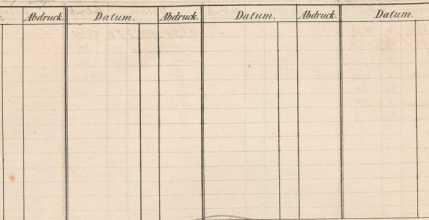 Abdruck. Datum. Abdruck. Datum. Abdruck. Datum.